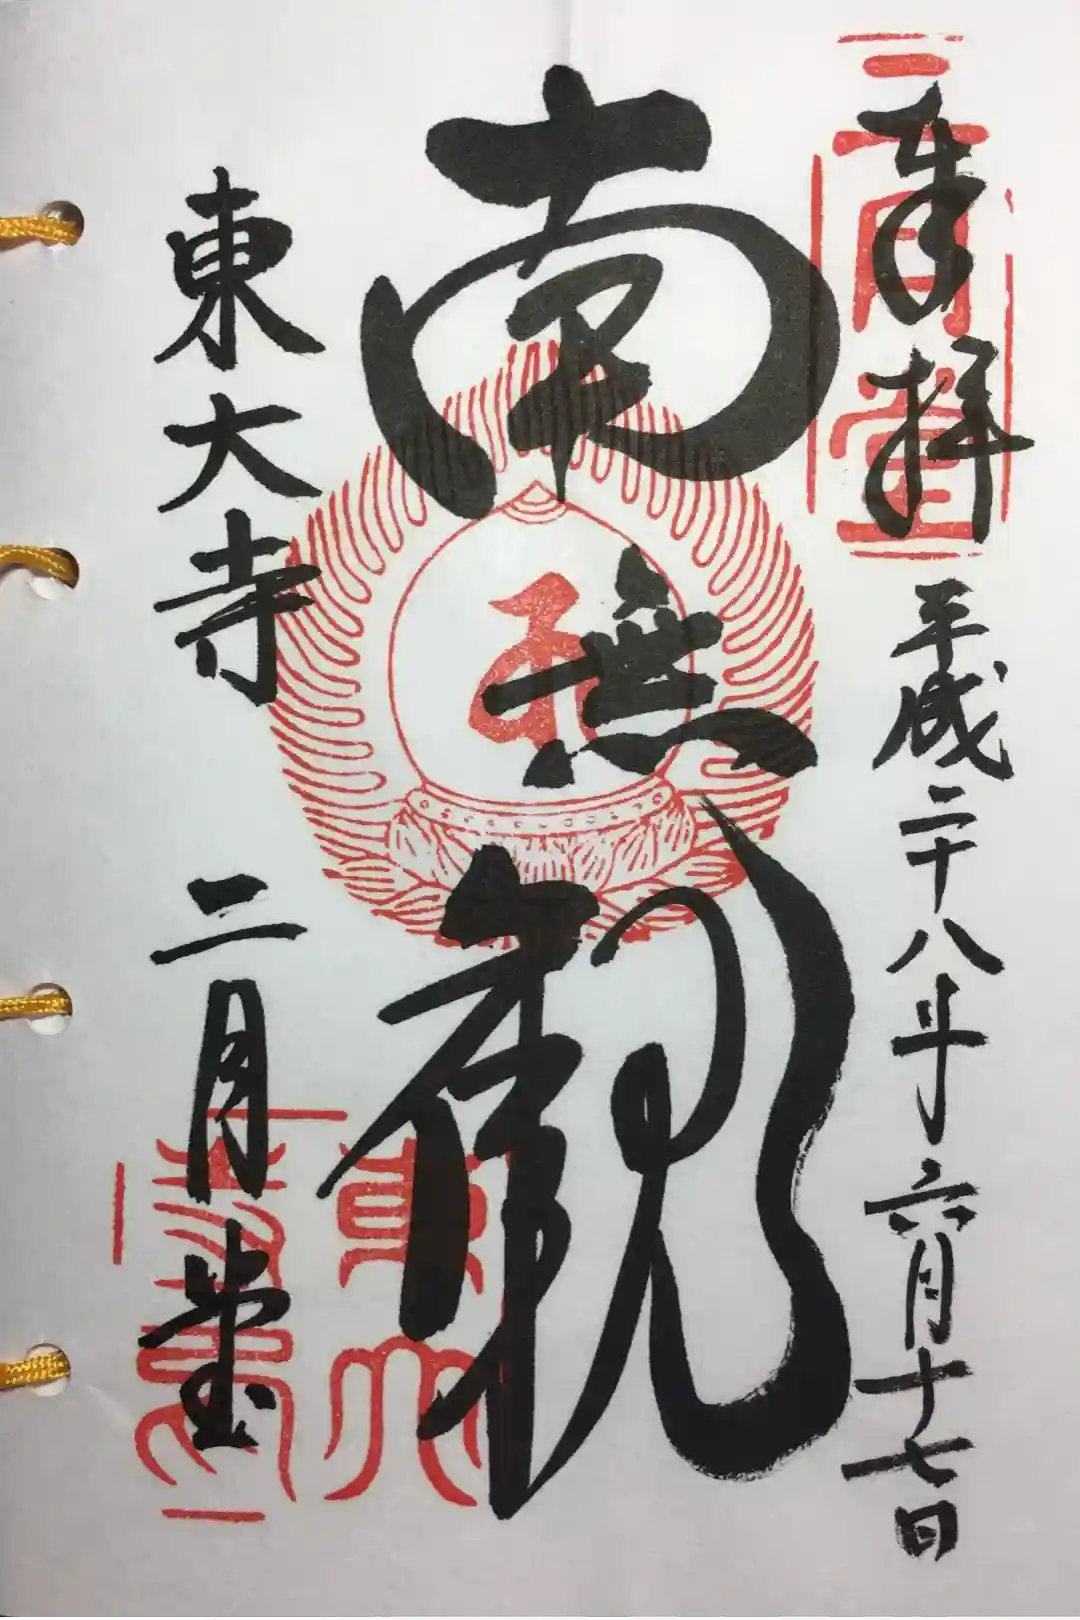 奉拝 平成二十八年六月十七日
二月堂
南無観
東大寺 二月堂